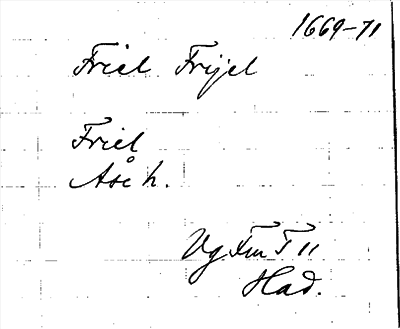 1669-71
Friel Frijel
Friel
Åse h.
Vg Fm T 11
Had.